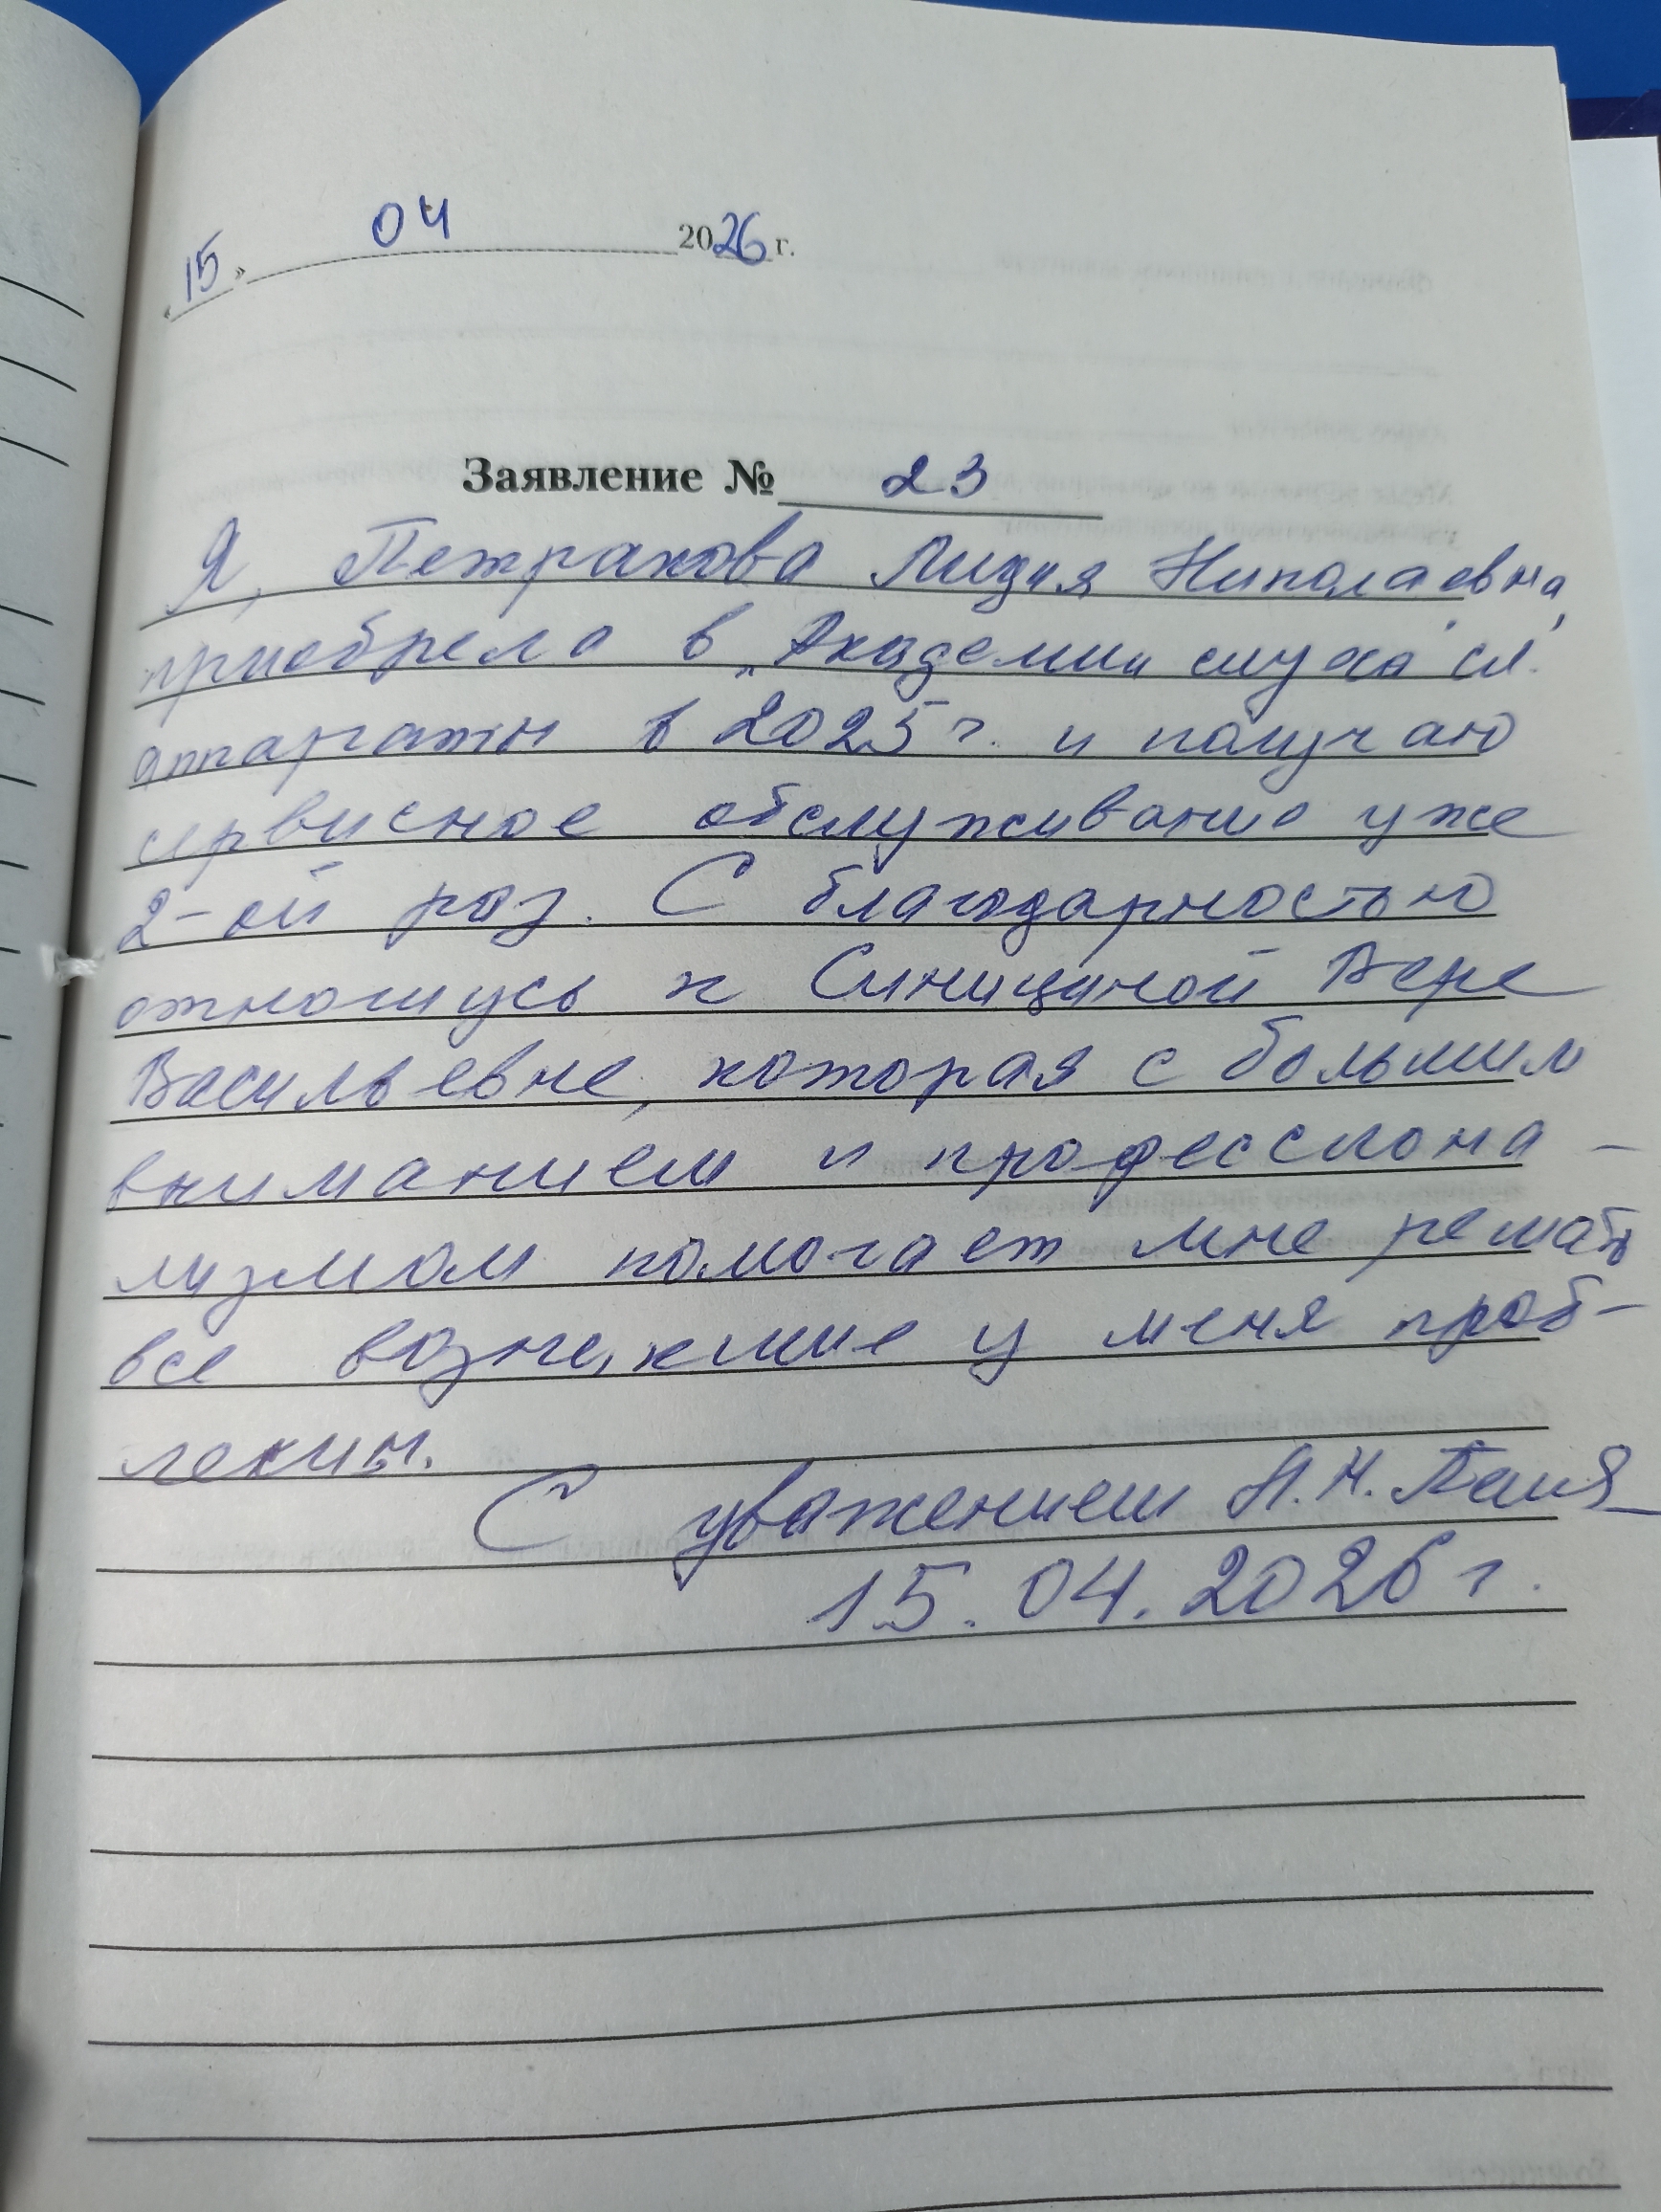 «15» 04 2026 г.
Заявление № 23
Я, Петракова Лидия Николаевна,
приобрела в "Академии слуха" сл.
аппараты в 2025 г. и получаю
сервисное обслуживание уже
2-ой раз. С благодарностью
отношусь к Синициной Вере
Васильевне, которая с большим
вниманием и профессиона-
лизмом помогает мне решать
все возникшие у меня проб-
лемы.
С уважением Л.Н.
15.04.2026 г.